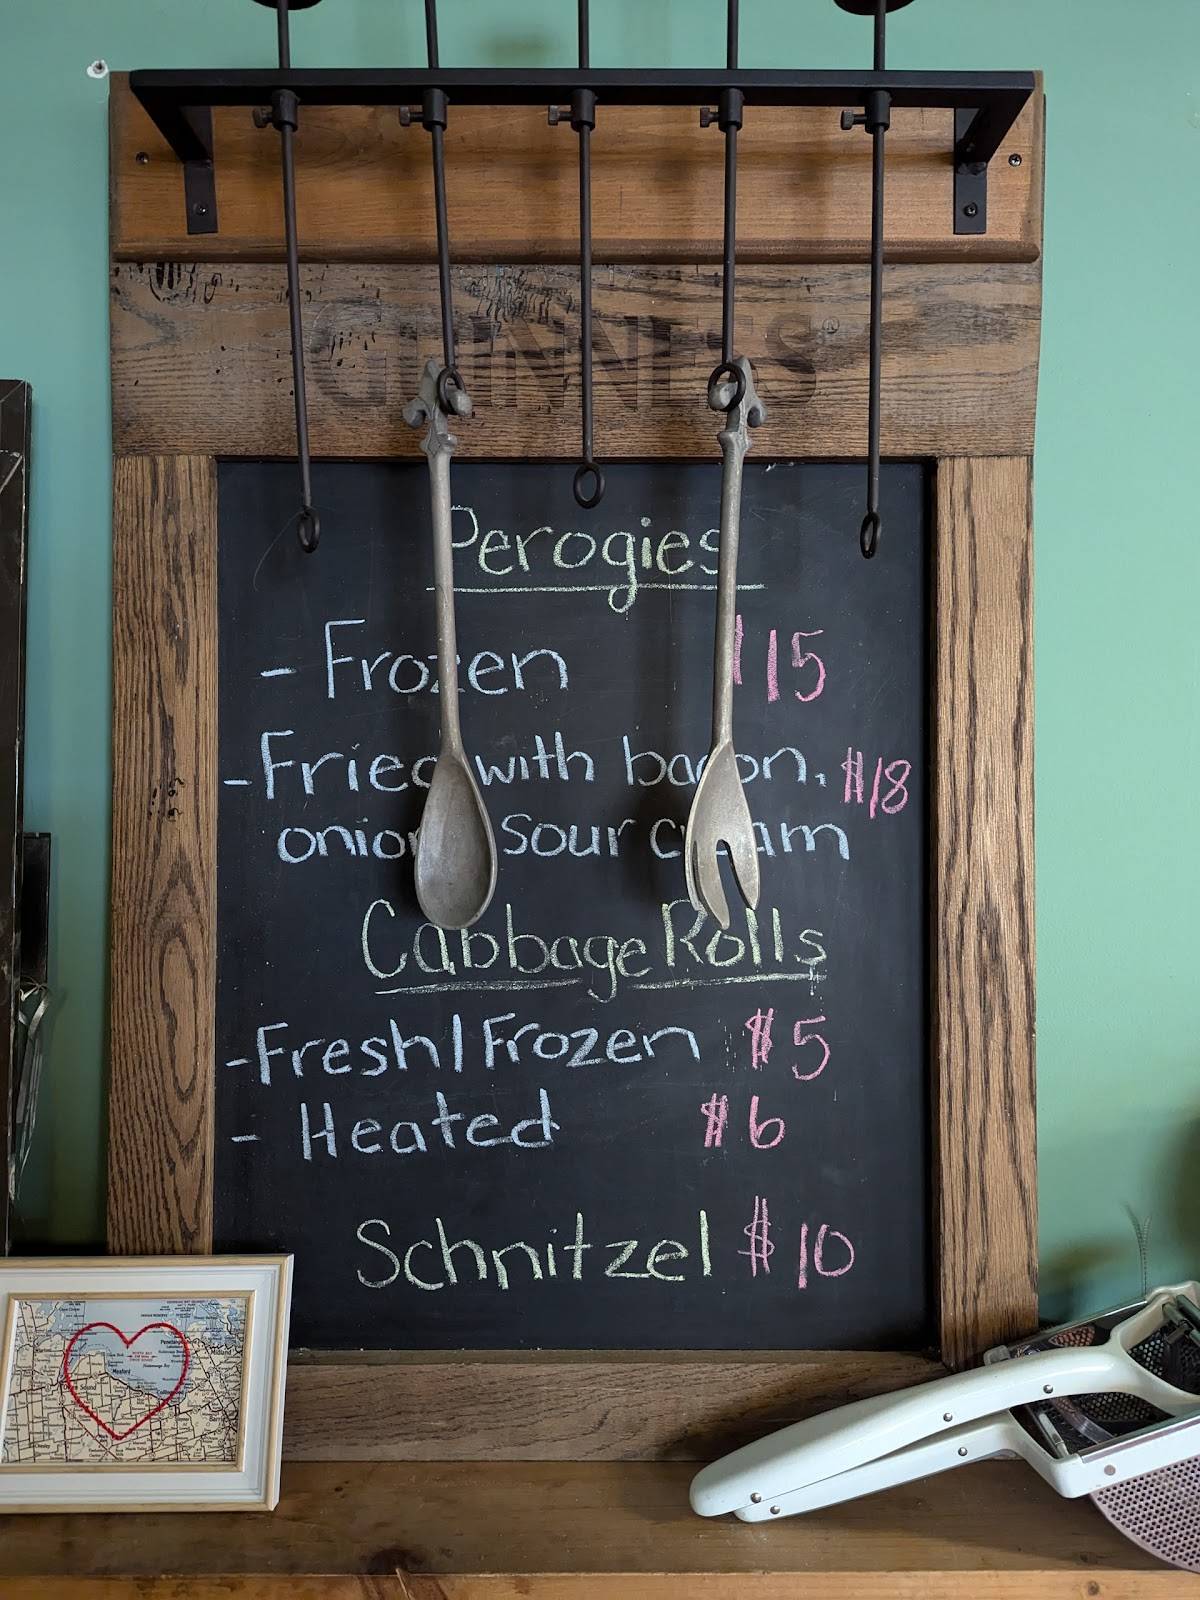 GUINNESS®
Perogies
- Frozen $15
- Fried with bacon, $18
onion, sour cream
Cabbage Rolls
- Fresh/Frozen $5
- Heated $6
Schnitzel $10
Midland
Meaford